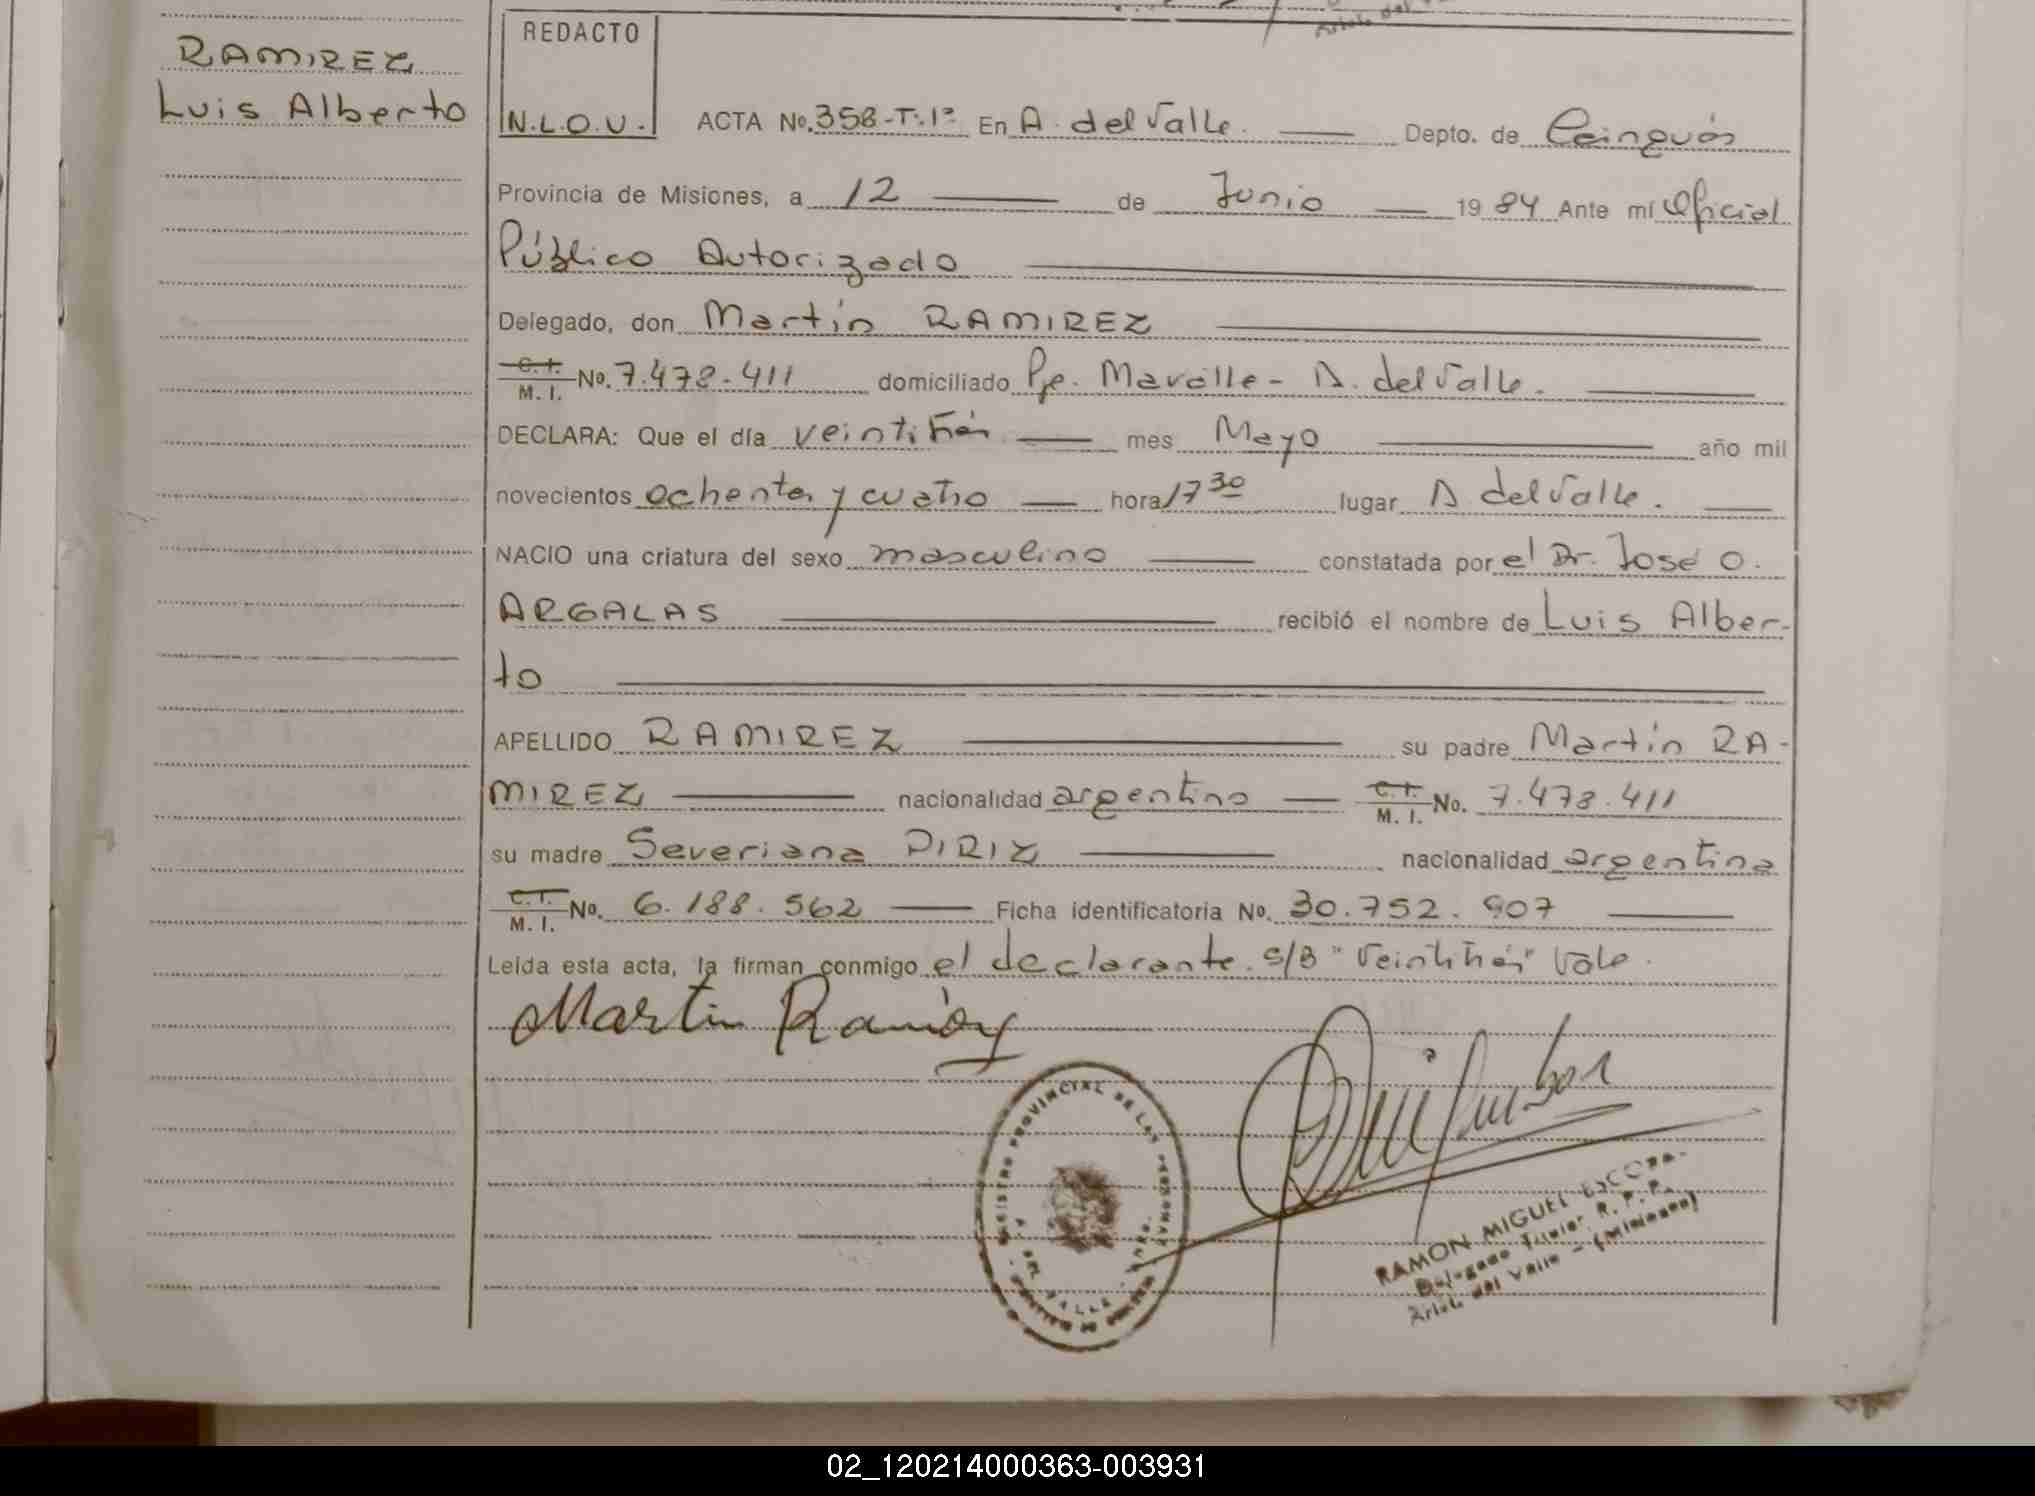 RAMIREZ
Luis Alberto
REDACTO
N.L.O.V.
ACTA No. 358-T:1º En A. del Valle. Depto. de Cainguás
Provincia de Misiones, a 12 de Junio 1984 Ante mí Oficial
Público Autorizado
Delegado, don Martín RAMIREZ
C.I. M.I. No. 7.478.411 domiciliado Pje. Mavalle - A. del Valle.
DECLARA: Que el día veintitrés mes Mayo año mil
novecientos ochenta y cuatro hora 17 30 lugar A. del Valle.
NACIO una criatura del sexo masculino constatada por el Dr. José O.
ARGALAS recibió el nombre de Luis Alber-
to
APELLIDO RAMIREZ su padre Martín RA-
MIREZ nacionalidad argentino C.I. M.I. No. 7.478.411
su madre Severiana PIRIZ nacionalidad argentina
C.I. M.I. No. 6.188.562 Ficha identificatoria No. 30.752.907
Leída esta acta, la firman conmigo el declarante. S/B "Veintitrés" Vale.
Martin Ramirez
REGISTRO PROVINCIAL DE LAS PERSONAS
A. DEL VALLE
RAMON MIGUEL ESCOBAR
Delegado Titular R. P. P.
Aristo. del Valle - (Misiones)
02_120214000363-003931